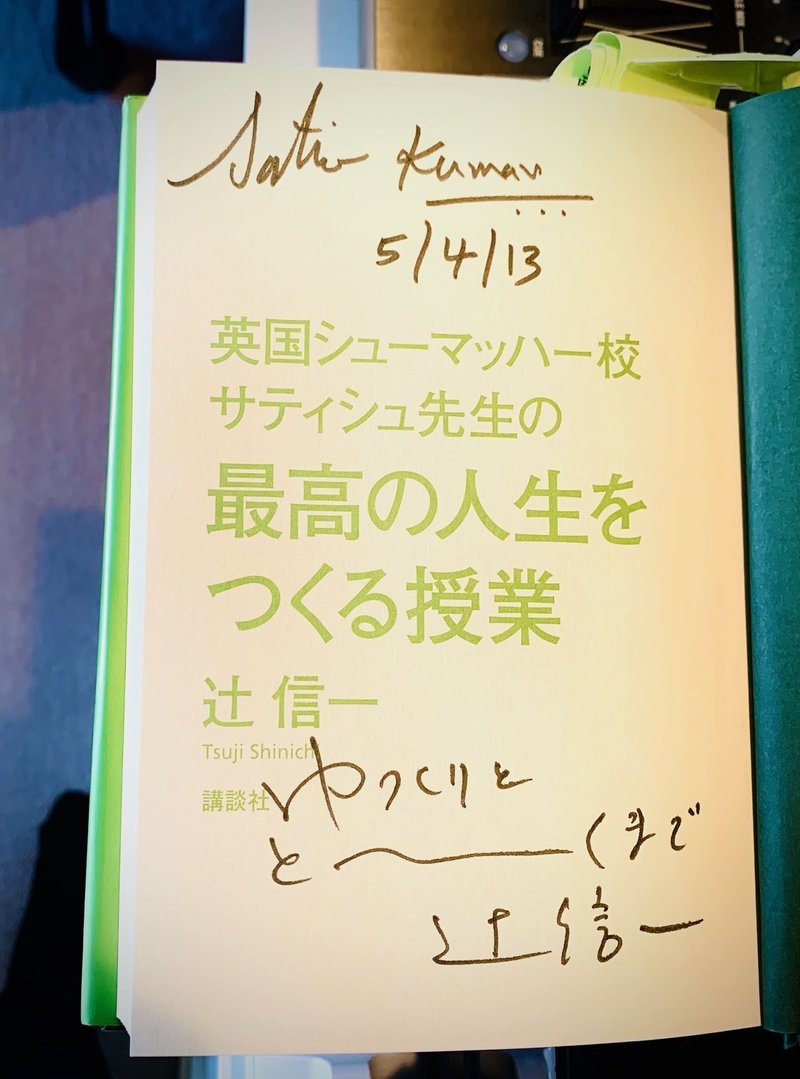 Satish Kumar
5/4/13
英国シューマッハー校
サティシュ先生の
最高の人生を
つくる授業
辻 信一
Tsuji Shinichi
講談社
ゆっくりと
と〜くまで
辻信一